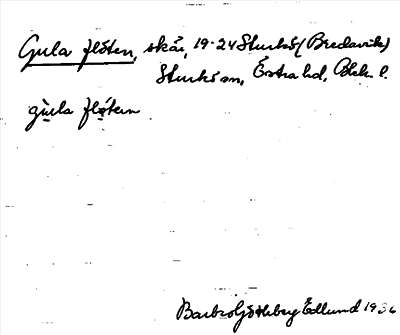 Gula flöten, skär, 19-24 Sturkö (Bredavik)
Sturkö sn, Östra hd, Blek. l.
gula flöten
Barbro Götheberg Edlund 1936